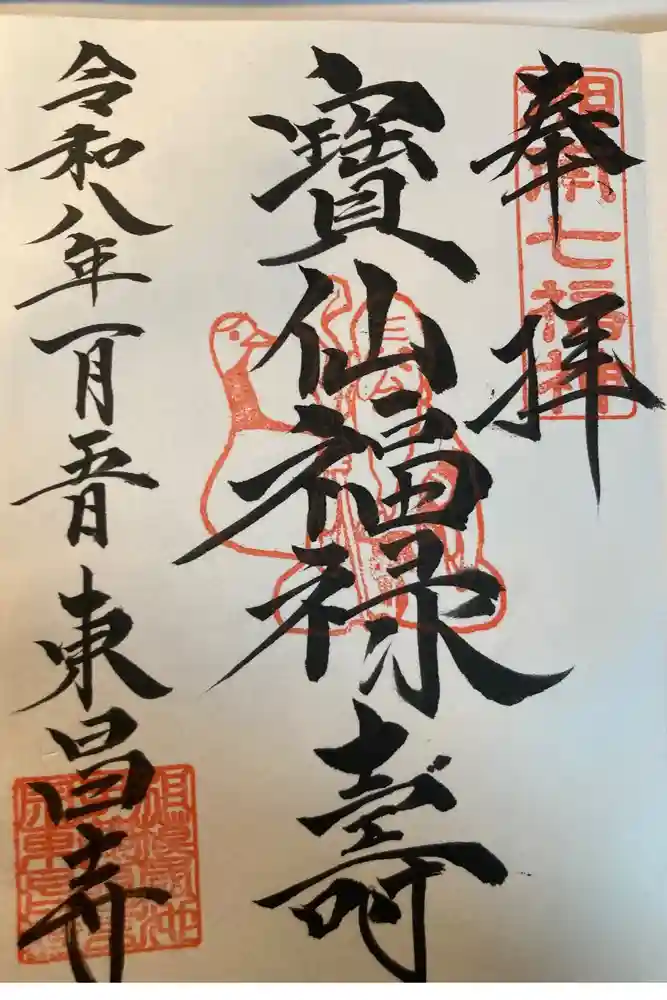 奉拝
湘南七福神
寶仙福禄壽
令和八年一月五日 東昌寺